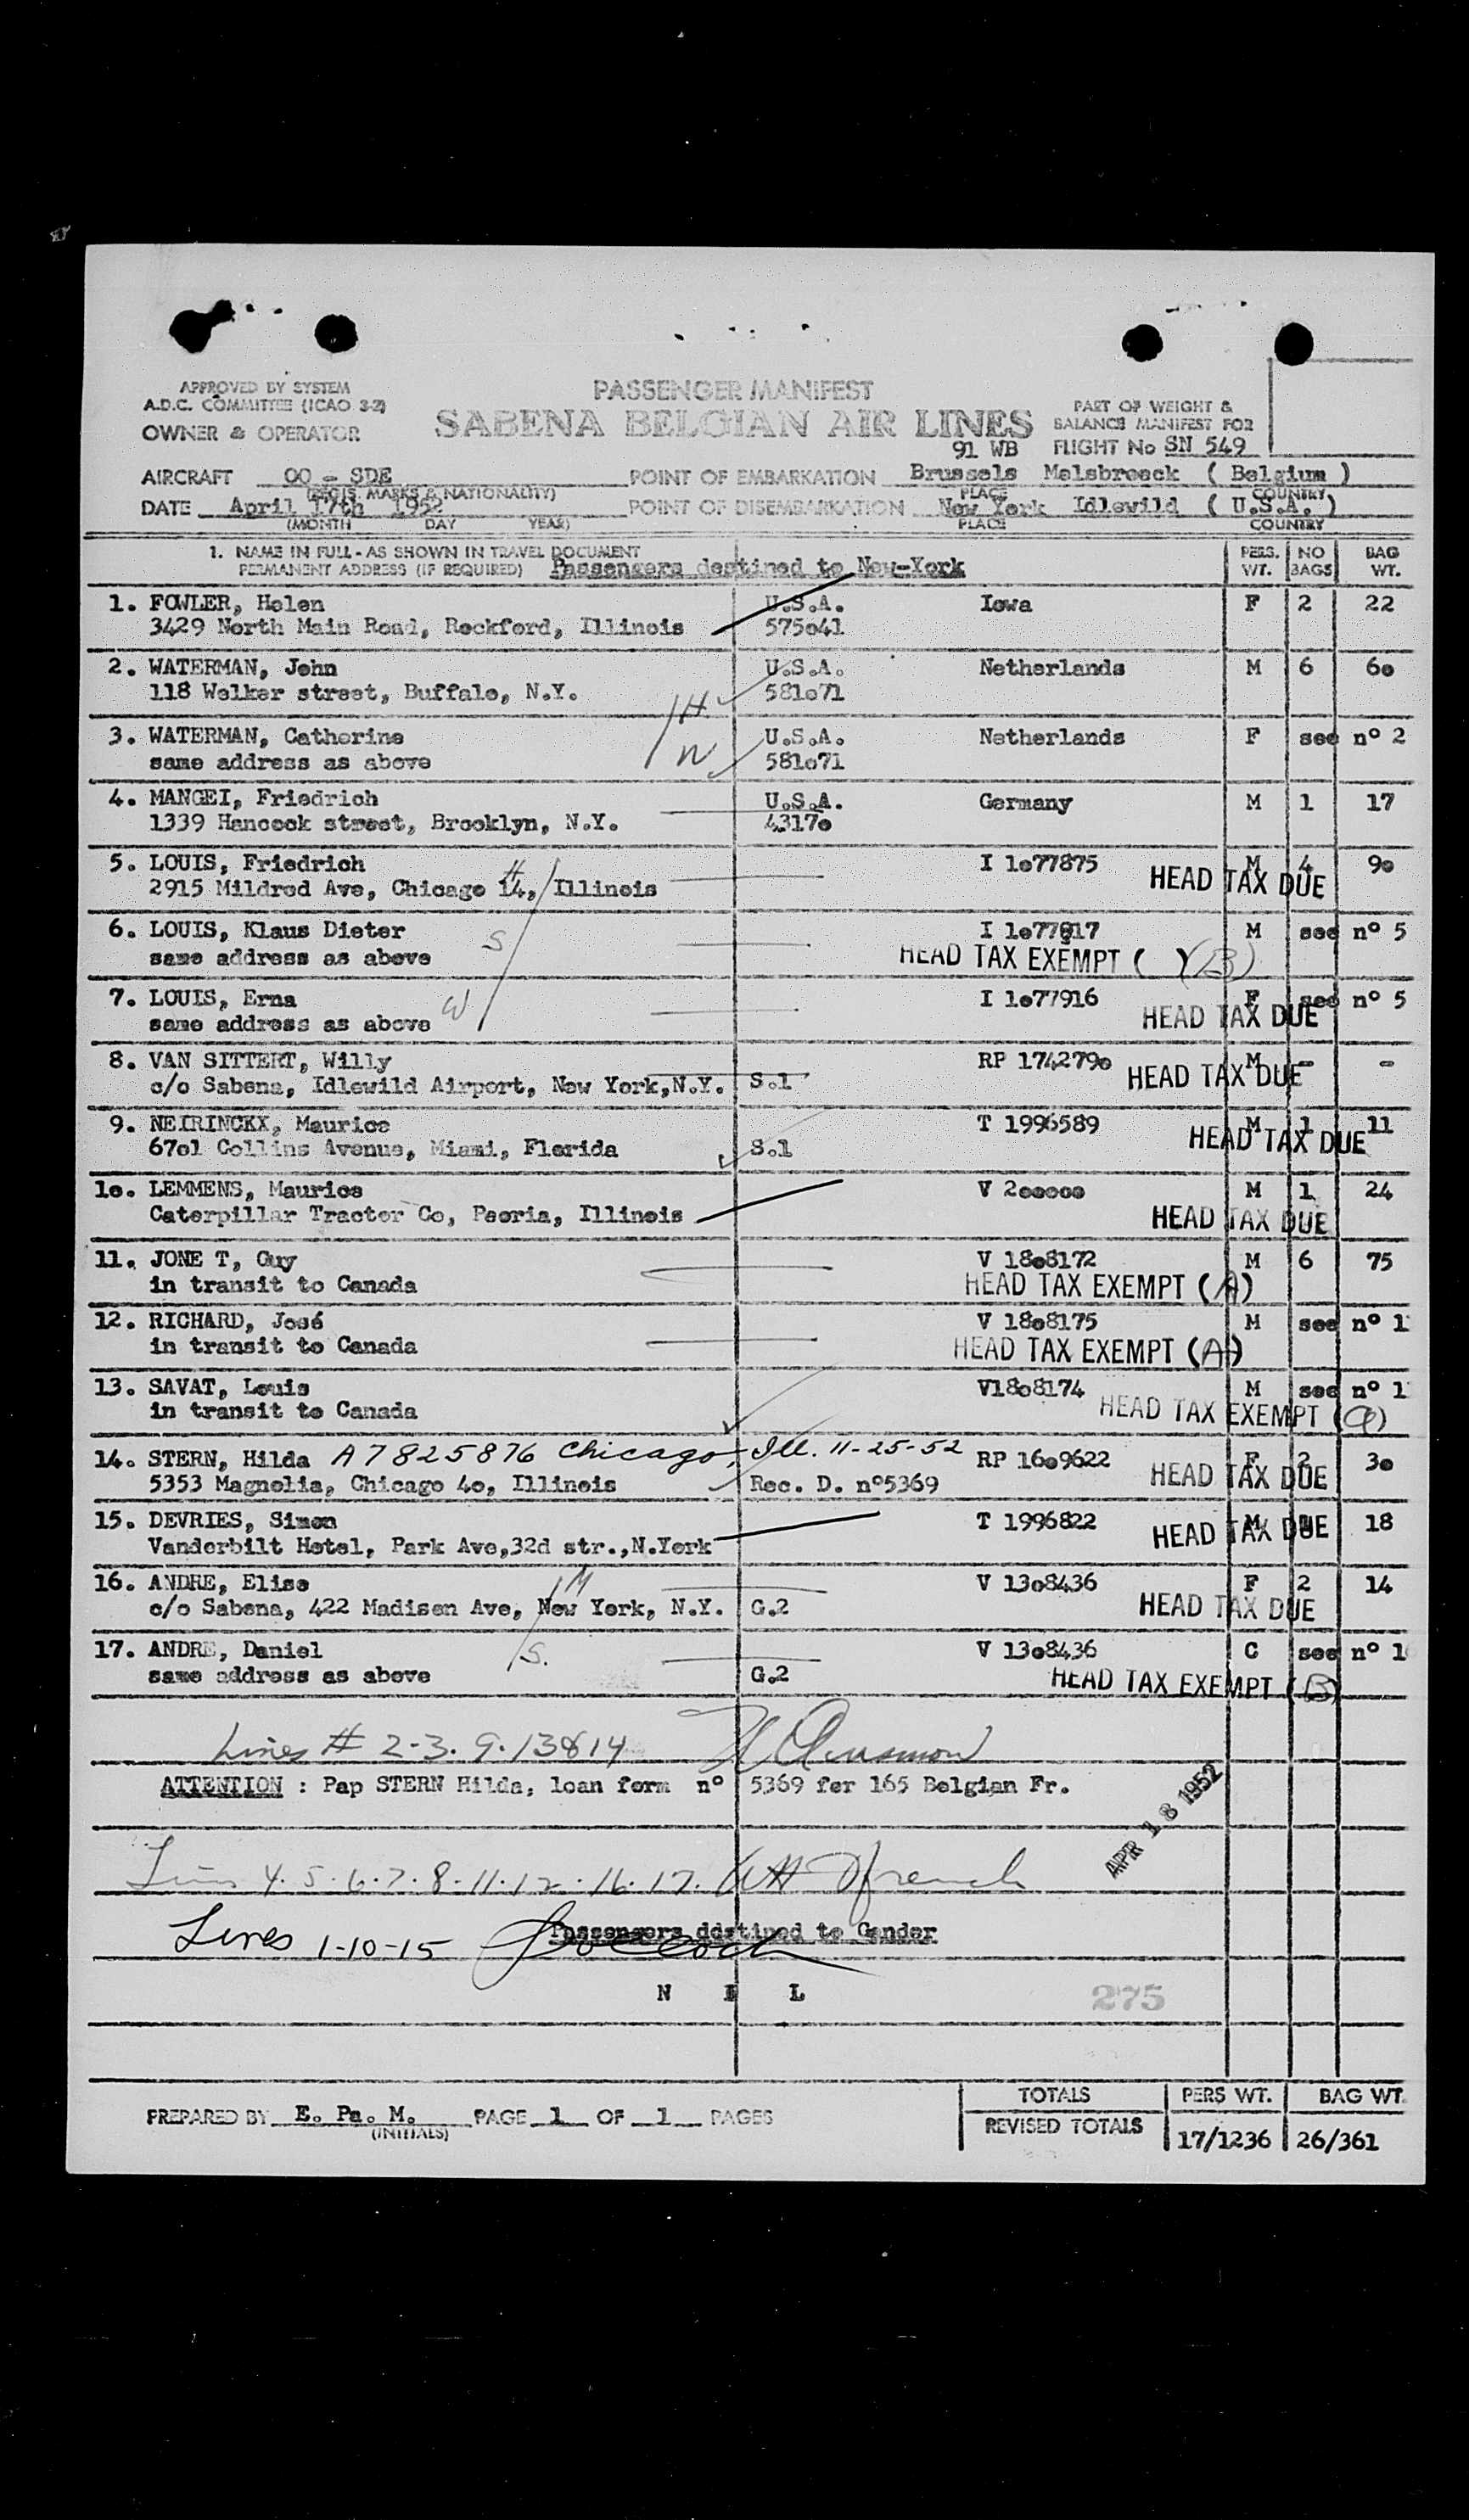 APPROVED BY SYSTEM
A.D.C. COMMITTEE (ICAO 3-2)
OWNER & OPERATOR
PASSENGER MANIFEST
SABENA BELGIAN AIR LINES
PART OF WEIGHT &
BALANCE MANIFEST FOR
91 WB FLIGHT No SN 549
AIRCRAFT OO - SDE POINT OF EMBARKATION Brussels Melsbroeck ( Belgium )
(REGIS. MARKS & NATIONALITY) PLACE COUNTRY
DATE April 17th 1952 POINT OF DISEMBARKATION New York Idlewild ( U.S.A. )
(MONTH DAY YEAR) PLACE COUNTRY
1. NAME IN FULL - AS SHOWN IN TRAVEL DOCUMENT PERS. NO BAG
PERMANENT ADDRESS (IF REQUIRED) Passengers destined to New-York WT. BAGS WT.
1. FOWLER, Helen U.S.A. Iowa F 2 22
3429 North Main Road, Rockford, Illinois 575o41
2. WATERMAN, John U.S.A. Netherlands M 6 6o
118 Welker street, Buffalo, N.Y. 581o71
H
3. WATERMAN, Catherine U.S.A. Netherlands F see nº 2
same address as above W 581o71
4. MANGEI, Friedrich U.S.A. Germany M 1 17
1339 Hancock street, Brooklyn, N.Y. 4317o
5. LOUIS, Friedrich H I 1o77875 M 4 9o
2915 Mildred Ave, Chicago 14, Illinois HEAD TAX DUE
6. LOUIS, Klaus Dieter S I 1o77917 M see nº 5
same address as above HEAD TAX EXEMPT ( ) (B)
7. LOUIS, Erna W I 1o77916 F see nº 5
same address as above HEAD TAX DUE
8. VAN SITTERT, Willy RP 174279o M - -
c/o Sabena, Idlewild Airport, New York,N.Y. S.1 HEAD TAX DUE
9. NEIRINCKX, Maurice T 1996589 M 1 11
67o1 Collins Avenue, Miami, Florida S.1 HEAD TAX DUE
1o. LEMMENS, Maurice V 2ooooo M 1 24
Caterpillar Tractor Co, Peoria, Illinois HEAD TAX DUE
11. JONE T, Guy V 18o8172 M 6 75
in transit to Canada HEAD TAX EXEMPT (A)
12. RICHARD, José V 18o8175 M see nº 1
in transit to Canada HEAD TAX EXEMPT (A)
13. SAVAT, Louis V18o8174 M see nº 1
in transit to Canada HEAD TAX EXEMPT (A)
14. STERN, Hilda A7825876 Chicago, Ill. 11-25-52 RP 16o9622 F 2 3o
5353 Magnolia, Chicago 4o, Illinois Rec. D. nº5369 HEAD TAX DUE
15. DEVRIES, Simon T 1996822 M 18
Vanderbilt Hotel, Park Ave,32d str.,N.York HEAD TAX DUE
16. ANDRE, Elise M V 13o8436 F 2 14
c/o Sabena, 422 Madison Ave, New York, N.Y. G.2 HEAD TAX DUE
17. ANDRE, Daniel V 13o8436 C see nº 1
same address as above S. G.2 HEAD TAX EXEMPT (B)
Lines # 2-3. 9. 13 & 14
ATTENTION : Pap STERN Hilda, loan form nº 5369 for 165 Belgian Fr.
APR 18 1952
4. 5. 6. 7. 8. 11. 12. 16. 17.
Passengers destined to Gander
Lines 1-10-15
N I L
275
TOTALS PERS WT. BAG WT.
PREPARED BY E. Pa. M. PAGE 1 OF 1 PAGES
(INITIALS) REVISED TOTALS 17/1236 26/361